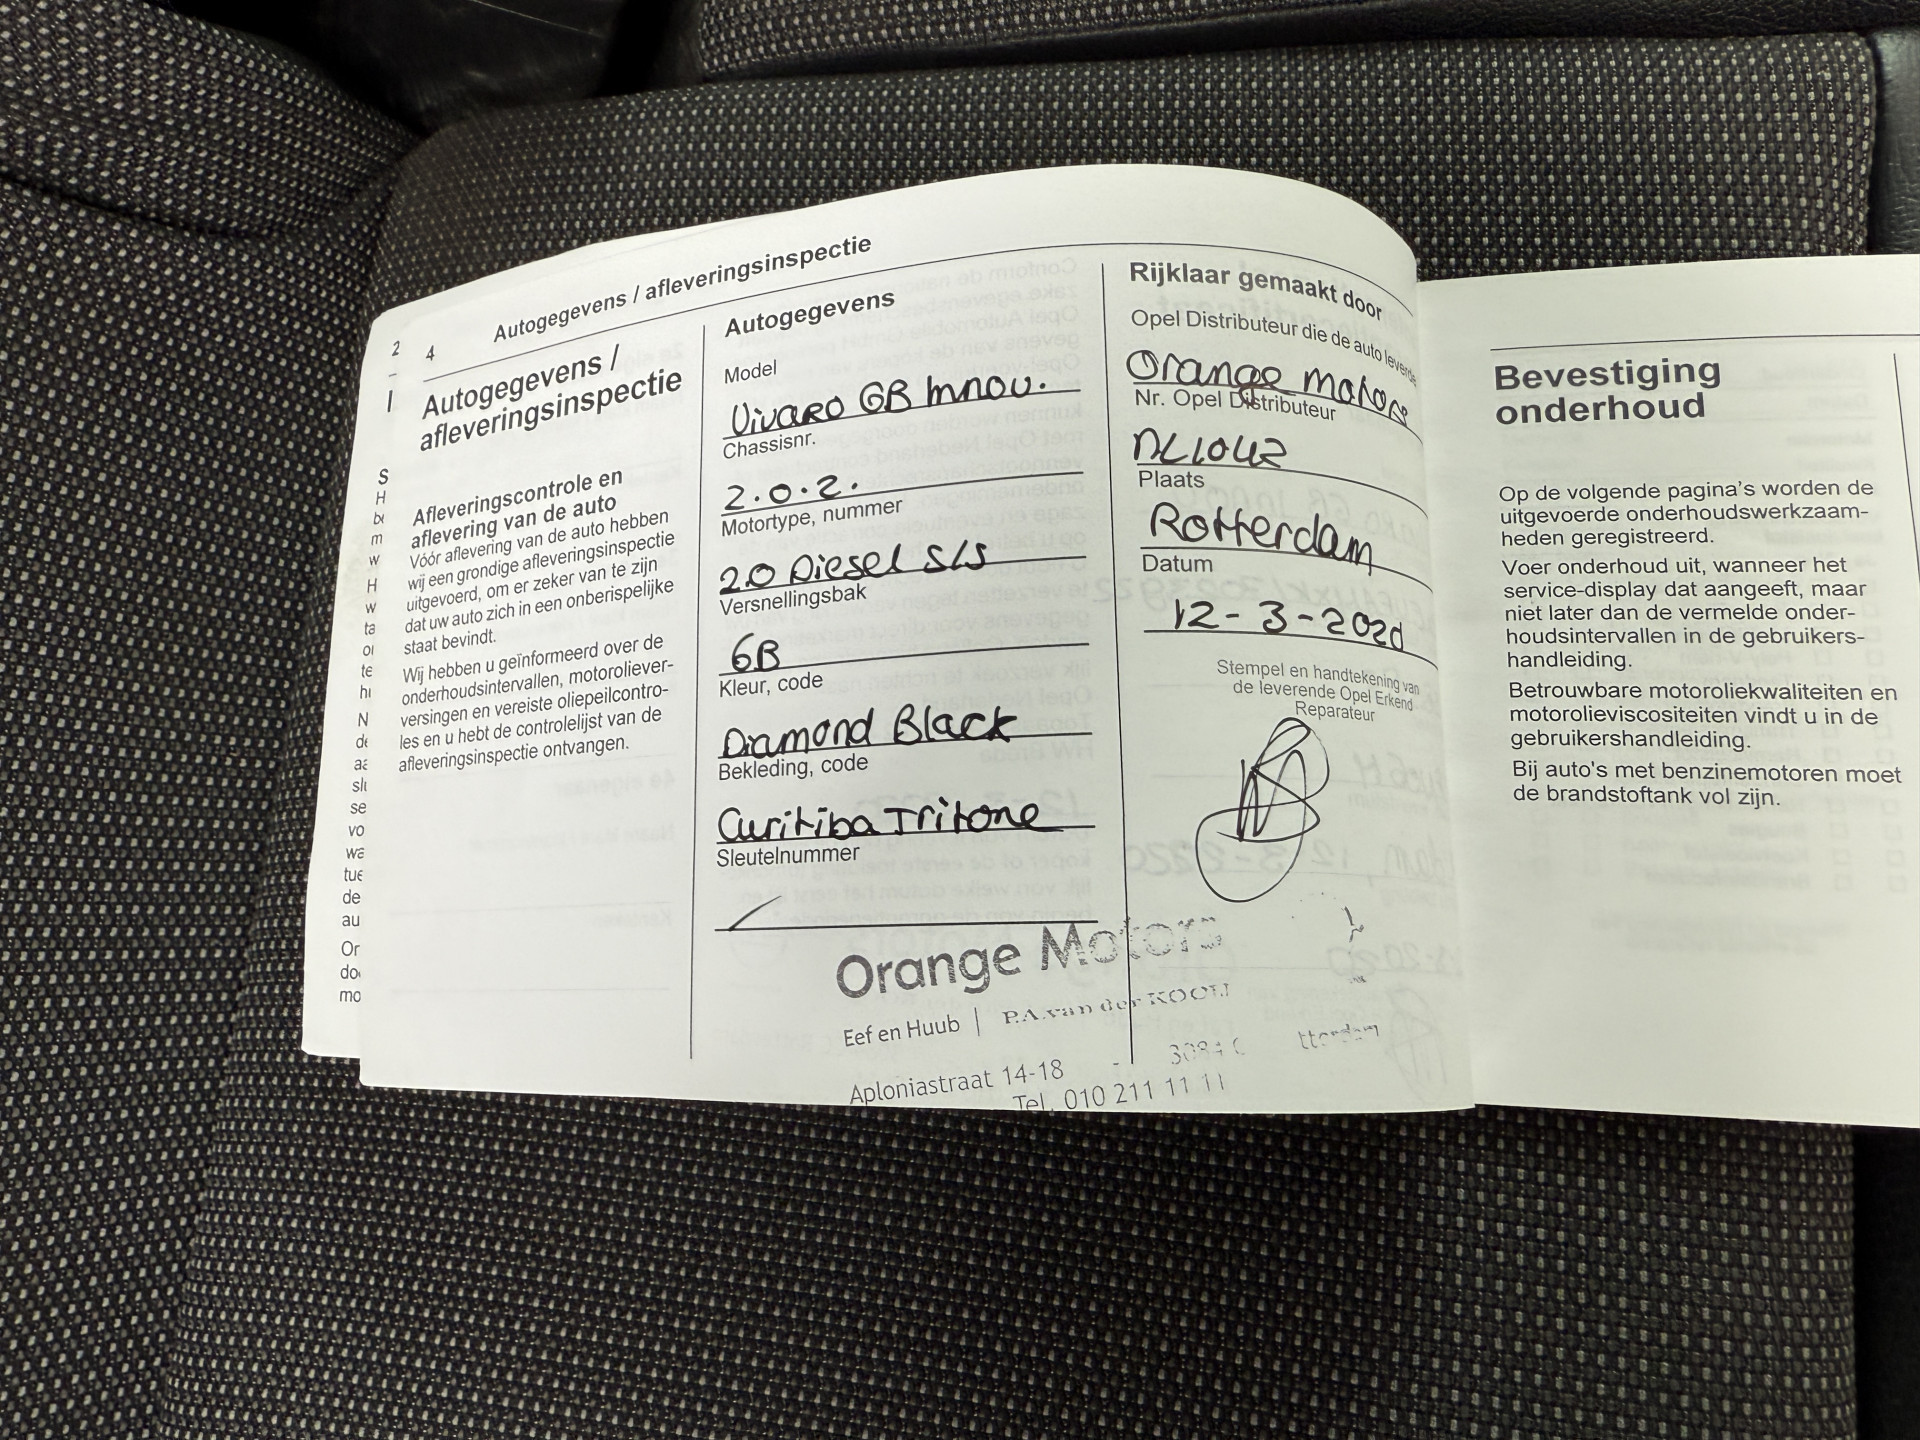 2
4
Autogegevens / afleveringsinspectie
I
Autogegevens /
afleveringsinspectie
S
H
m
w
H
w
ta
te
N
slu
se
vo
wa
tue
de
au
Or
mo
Afleveringscontrole en
aflevering van de auto
Vóór aflevering van de auto hebben
wij een grondige afleveringsinspectie
uitgevoerd, om er zeker van te zijn
dat uw auto zich in een onberispelijke
staat bevindt.
Wij hebben u geïnformeerd over de
onderhoudsintervallen, motoroliever-
versingen en vereiste oliepeilcontro-
les en u hebt de controlelijst van de
afleveringsinspectie ontvangen.
Autogegevens
Model
Vivaro GB Innov.
Chassisnr.
2.0.2.
Motortype, nummer
2.0 Diesel S/S
Versnellingsbak
6B
Kleur, code
Diamond Black
Bekleding, code
Curitiba Tritone
Sleutelnummer
Rijklaar gemaakt door
Opel Distributeur die de auto leverde
Orange Motors
Nr. Opel Distributeur
NL1042
Plaats
Rotterdam
Datum
12-3-2020
Stempel en handtekening van
de leverende Opel Erkend
Reparateur
Orange Motors
Eef en Huub | P.A. van der KOOIJ
Aploniastraat 14-18 - 3084 tterdam
Tel. 010 211 11 11
Bevestiging
onderhoud
Op de volgende pagina's worden de
uitgevoerde onderhoudswerkzaam-
heden geregistreerd.
Voer onderhoud uit, wanneer het
service-display dat aangeeft, maar
niet later dan de vermelde onder-
houdsintervallen in de gebruikers-
handleiding.
Betrouwbare motoroliekwaliteiten en
motorolieviscositeiten vindt u in de
gebruikershandleiding.
Bij auto's met benzinemotoren moet
de brandstoftank vol zijn.